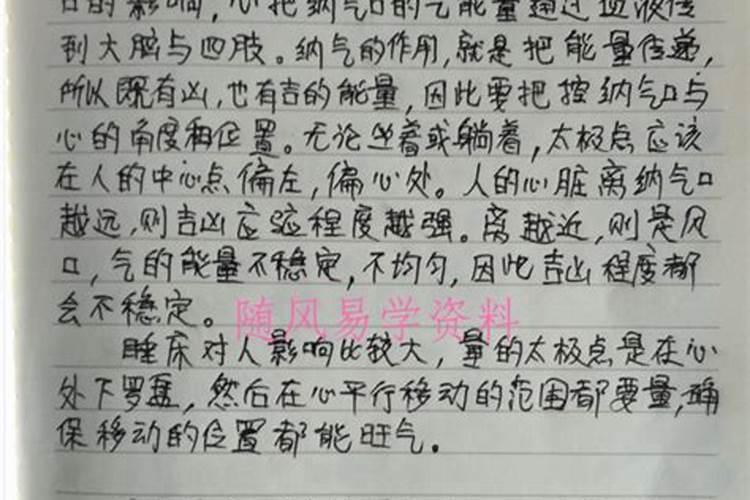 的影响,心把纳气口的气能量通过血液传
到大脑与四肢。纳气的作用,就是把能量传递,
所以既有凶,也有吉的能量,因此要把控纳气口与
心的角度和位置。无论坐着或躺着,太极点应该
在人的中心点偏左,偏心处。人的心脏离纳气口
越远,则吉凶应验程度越强。离越近,则是风
口,气的能量不稳定,不均匀,因此吉凶程度都
会不稳定。
随风易学资料
睡床对人影响比较大,量的太极点是在心
处下罗盘,然后在心平行移动的范围都要量,确
保移动的位置都能旺气。